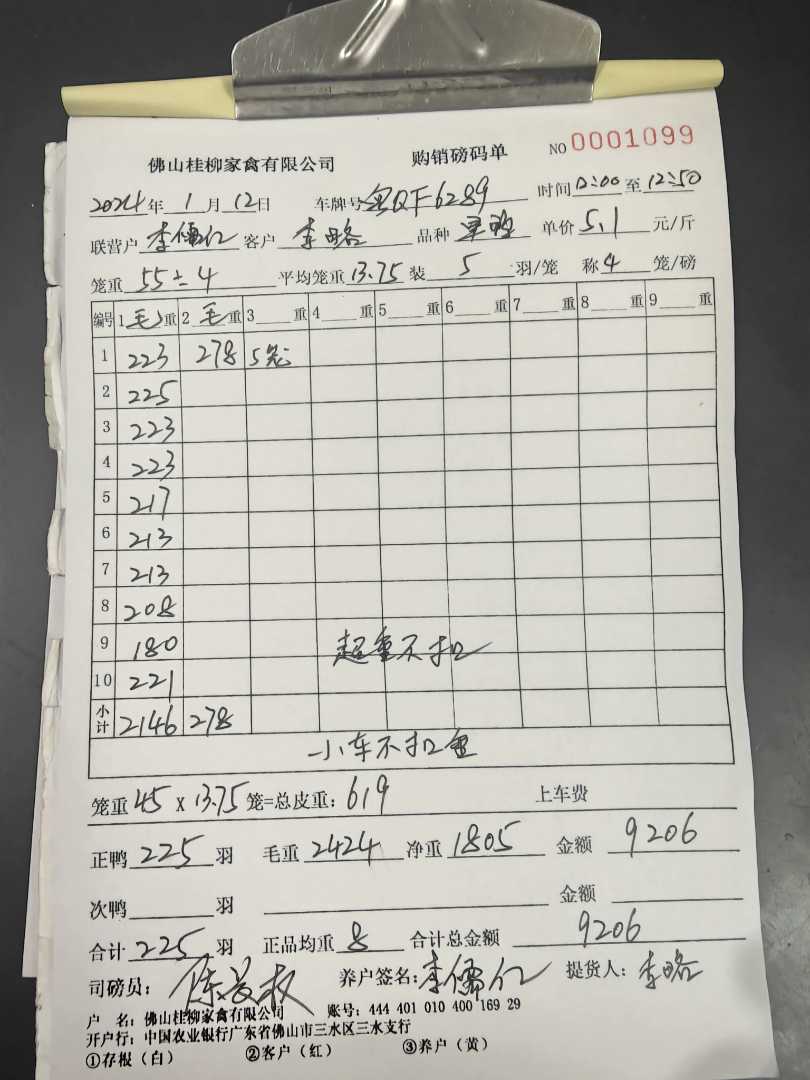 佛山桂柳家禽有限公司 购销磅码单 NO 0001099
2024年 1 月 12日 车牌号 QF6289 时间 12:00 至 12:50
联营户 李儒仁 客户 李略 品种 单价 5.1 元/斤
笼重 55÷4 平均笼重 13.75 装 5 羽/笼 称 4 笼/磅
编号 1 毛 重 2 毛 重 3 重 4 重 5 重 6 重 7 重 8 重 9 重
1 223 278 5笼
2 225
3 223
4 223
5 217
6 213
7 213
8 208
9 180 超重不扣
10 221
小计 2146 278
小车不扣
笼重 45 x 13.75 笼=总皮重: 619 上车费
正鸭 225 羽 毛重 2424 净重 1805 金额 9206
次鸭 羽 金额
合计 225 羽 正品均重 8 合计总金额 9206
司磅员: 养户签名: 李儒仁 提货人: 李略
户 名: 佛山桂柳家禽有限公司 账号: 444 401 010 400 169 29
开户行: 中国农业银行广东省佛山市三水区三水支行
①存根(白) ②客户(红) ③养户(黄)